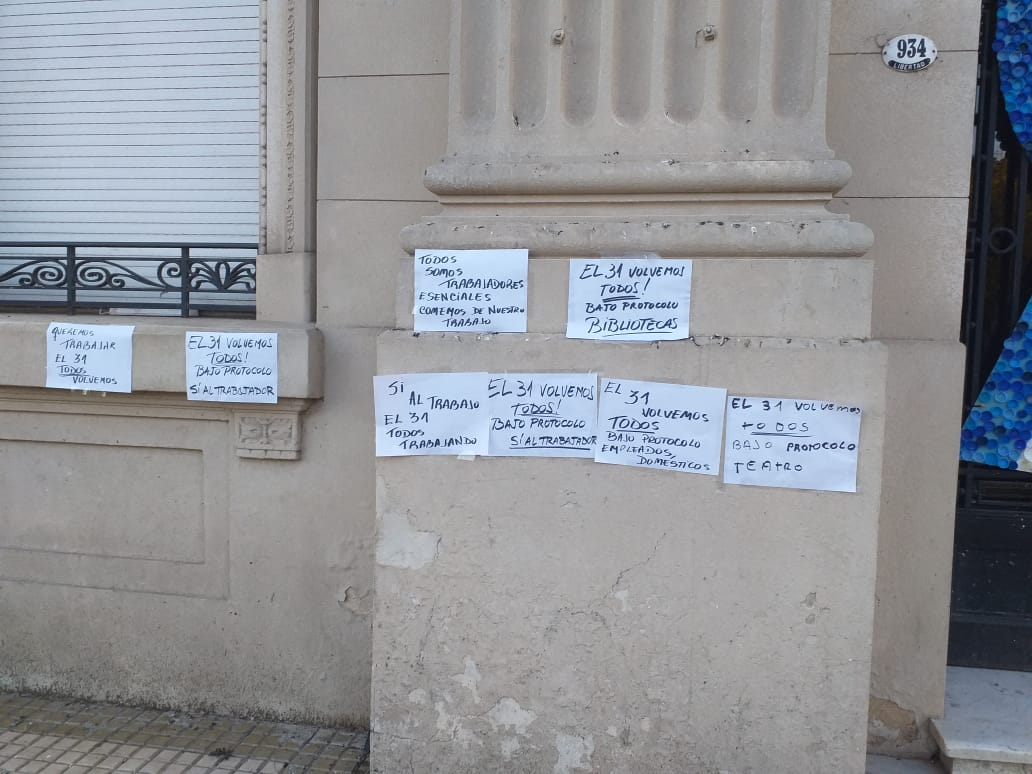 934
LIBERTAD
TODOS
SOMOS
TRABAJADORES
ESENCIALES
COMEMOS DE NUESTRO
TRABAJO
EL 31 VOLVEMOS
TODOS!
BAJO PROTOCOLO
BIBLIOTECAS
QUEREMOS
TRABAJAR
EL 31
TODOS
VOLVEMOS
EL 31 VOLVEMOS
TODOS!
BAJO PROTOCOLO
SÍ AL TRABAJADOR
SI
AL TRABAJO
EL 31
TODOS
TRABAJANDO
EL 31 VOLVEMOS
TODOS!
BAJO PROTOCOLO
SÍ AL TRABAJADOR
EL
31
VOLVEMOS
TODOS
BAJO PROTOCOLO
EMPLEADOS,
DOMÉSTICOS
EL 31 VOLVEMOS
TODOS
BAJO PROTOCOLO
TEATRO